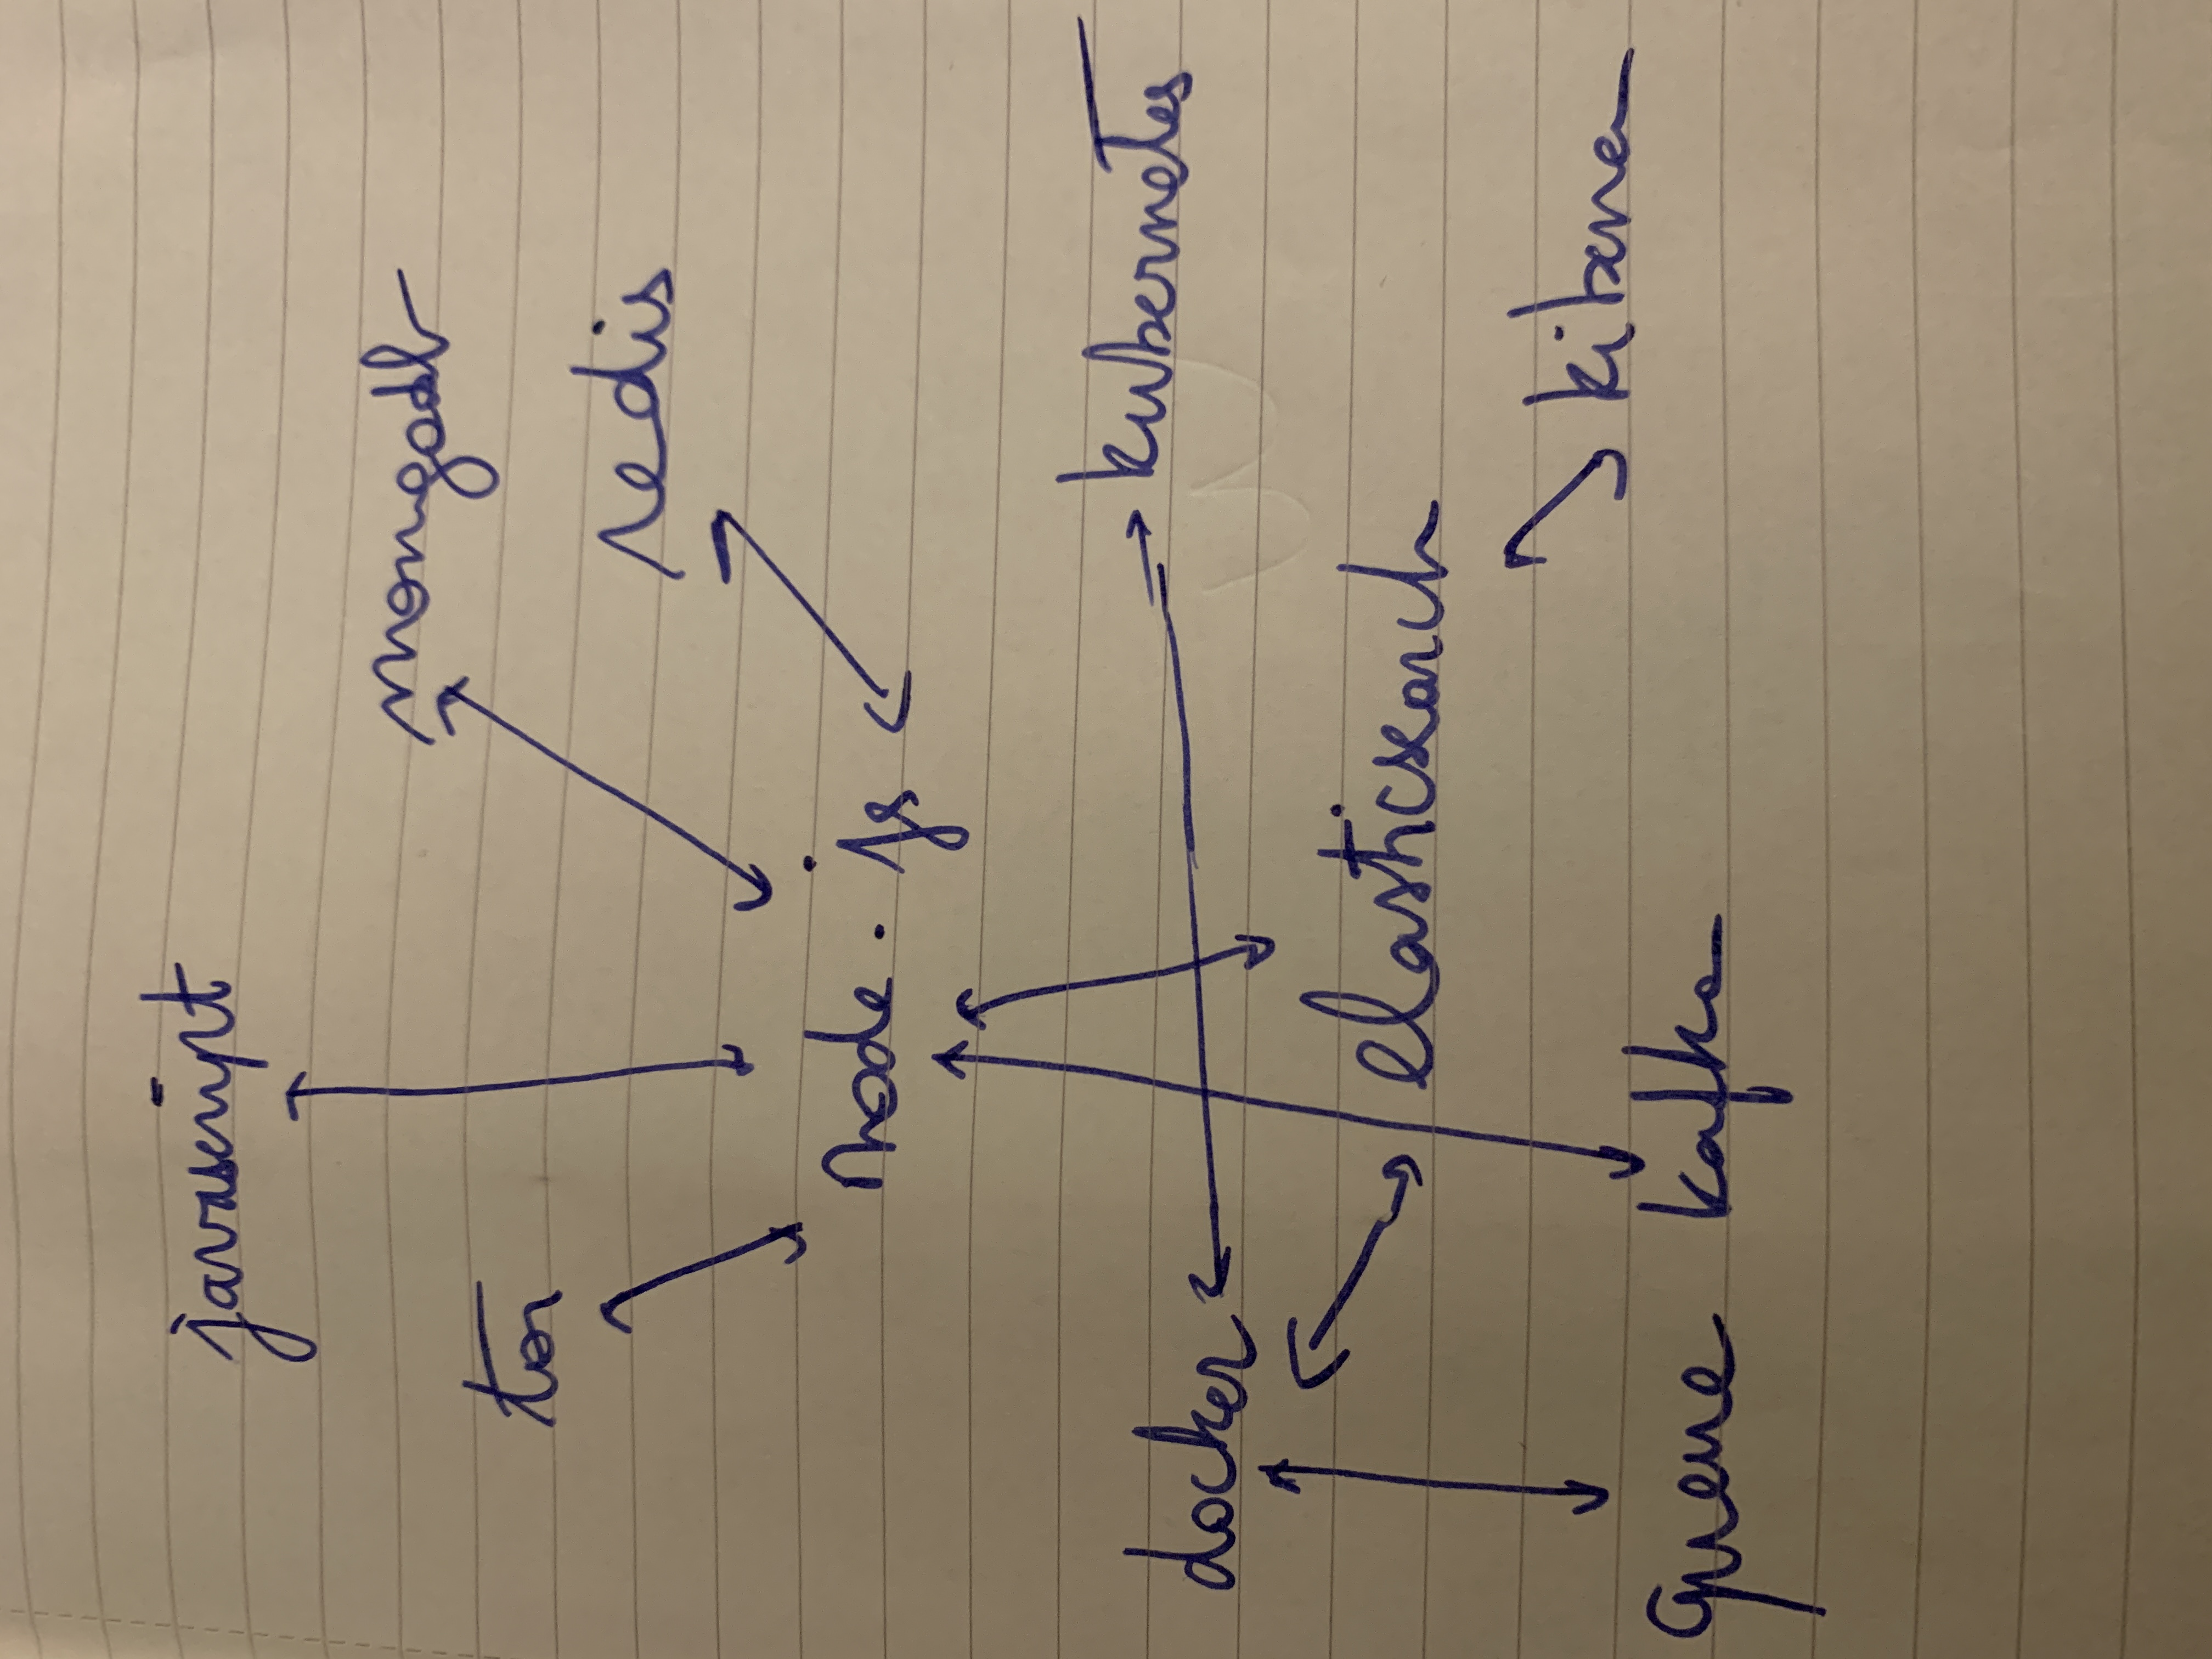 javascript
mongodb
tor
redis
node.js
kubernetes
docker
elasticsearch
kibana
queue kafka